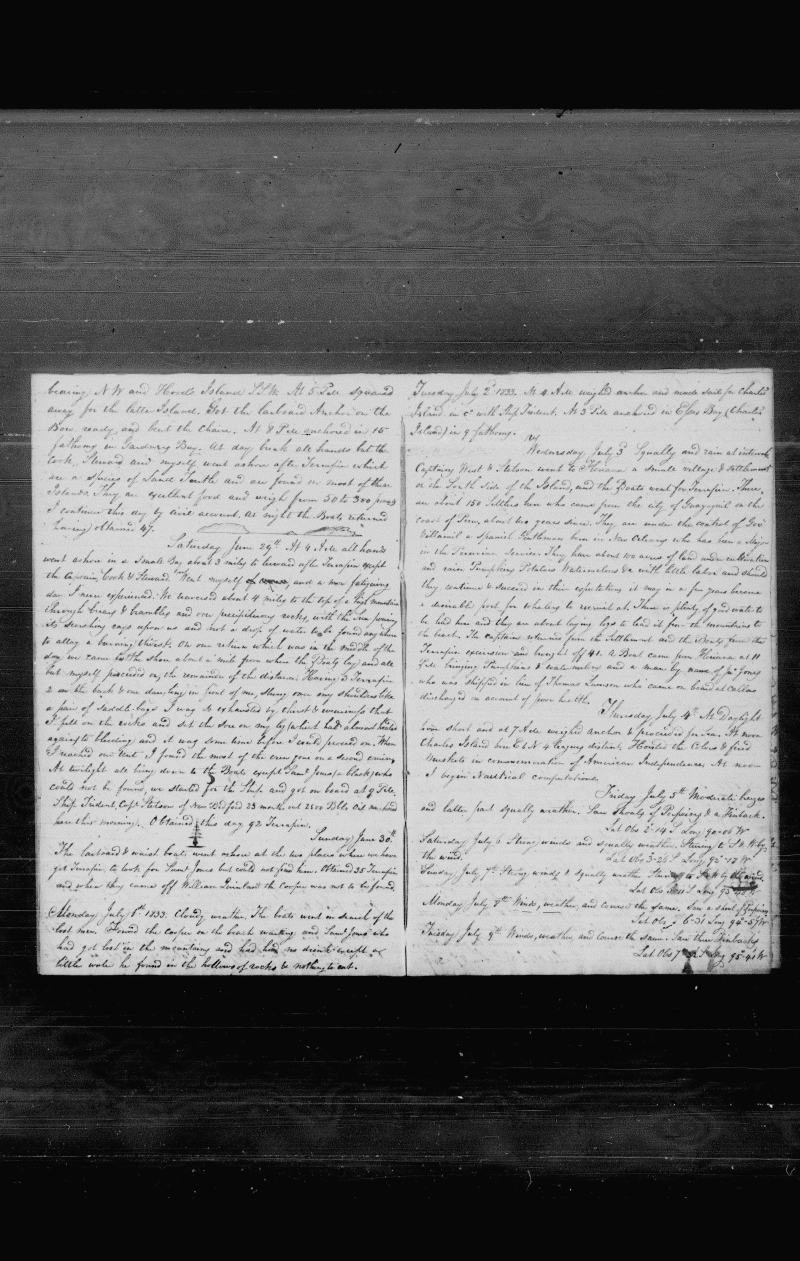 bearing N W and Hood's Island S.S.W. At 5 P.de squared
away for the latter Island. Got the larboard Anchor on the
Bow ready, and bent the Chain. At 8 P.de anchored in 15
fathoms in Gardners Bay. At day break all hands but the
Cook, Steward and myself went ashore after Terrapin which
are a species of Land Turtle and are found on most of these
Islands. They are excellent food and weigh from 30 to 300 pounds
I continue this day by civil account. At night the Boats returned
having obtained 47.
Saturday June 29th At 4 A.de all hands
went ashore in a small Bay about 3 miles to leeward after Terrapin except
the Captain, Cook & Steward. Went myself and a more fatiguing
day I never experienced. We traversed about 4 miles to the top of a high mountain
through briars & brambles and over precipitous rocks, with the sun pouring
its scorching rays upon us and not a drop of water to be found any where
to allay a burning thirst. On our return which was in the middle of the
day we came to the shore about a mile from where the Boats lay and all
but myself proceeded on the remainder of the distance. Having 3 Terrapin
2 on the back & one dangling in front of me, slung over my shoulders like
a pair of saddle bags I was so exhausted by thirst & weariness that
I fell on the rocks and set the sore on my leg (which had almost healed
again) to bleeding and it was some time before I could proceed on. When
I reached our tent I found the most of the crew gone on a second cruise.
At twilight all being down to the Boats except Saml Jones (a black) who
could not be found, we started for the Ship and got on board at 9 P.de.
Ship Trident Capt Stetson of New Bedford 25 months out 2500 Bbls Oil anchored
near there this morning. Obtained this day 92 Terrapin.
Sunday June 30th
The larboard & waist boats went ashore at the two places where we have
got Terrapin to look for Saml Jones but could not find him. Obtained 35 Terrapin
and when they came off William the Cooper was not to be found.
Monday July 1st 1833. Cloudy weather. The boats went in search of the
lost men. Found the cooper on the beach waiting and Saml Jones who
had got lost in the mountains and had had no drink except a
little water he found in the hollows of rocks & nothing to eat.
Tuesday July 2d 1833. At 4 A.de weighed anchor and made sail for Charles
Island in co with Ship Trident. At 3 P.de anchored in Essex Bay (Charles
Island) in 9 fathoms.
Wednesday July 3d Squally and rain at intervals
Captains West & Stetson went to a small village & settlement
on the South Side of the Island, and the Boats went for Terrapin. There
are about 150 Settlers here who came from the city of Guayaquil on the
coast of Peru, about two years since. They are under the control of Gov
Villamil a Spanish Gentleman born in New Orleans who has been a Major
in the Peruvian Service. They have about 100 acres of land under cultivation
and raise Pumpkins Potatoes Watermelons &c with little labor and should
they continue & succeed in their expectations it may in a few years become
a desirable port for whaling to recruit at. There is plenty of good water to
be had here and they are about laying logs to lead it from the mountains to
the beach. The captains returned from the Settlement and the Boats from the
Terrapin excursion and brought off 41. A Boat came from at 11
P.de bringing Pumpkins & watermelons and a man by name of Jones
who was shipped in lieu of Thomas Lawson who came on board at Callao
discharged on account of poor health.
Thursday July 4th At Daylight
hove short and at 7 A.de weighed anchor & proceeded for Sea. At noon
Charles Island bore E b N 4 leagues distant. Hoisted the Colors & fired
Muskets in commemoration of American Independence. At noon
I begin Nautical computations.
Friday July 5th Moderate breezes
and latter part squally weather. Saw shoals of Porpoises & a Finback.
Lat Obs 2-14 S Long 90-06 W
Saturday July 6 Strong winds and squally weather. Steering to S W by
the wind. Lat Obs 3-26 S Long 92-17 W
Sunday, July 7th Strong winds & squally weather Steering to S W by the wind.
Lat Obs S Long 93- W
Monday July 8th Winds, weather, and course the same. Saw a shoal of Porpoises
Lat Obs 6-31 Long 94-57 W
Tuesday July 9th Winds, weather, and course the same. Saw three Finbacks
Lat Obs 7- S Long 95-41 W